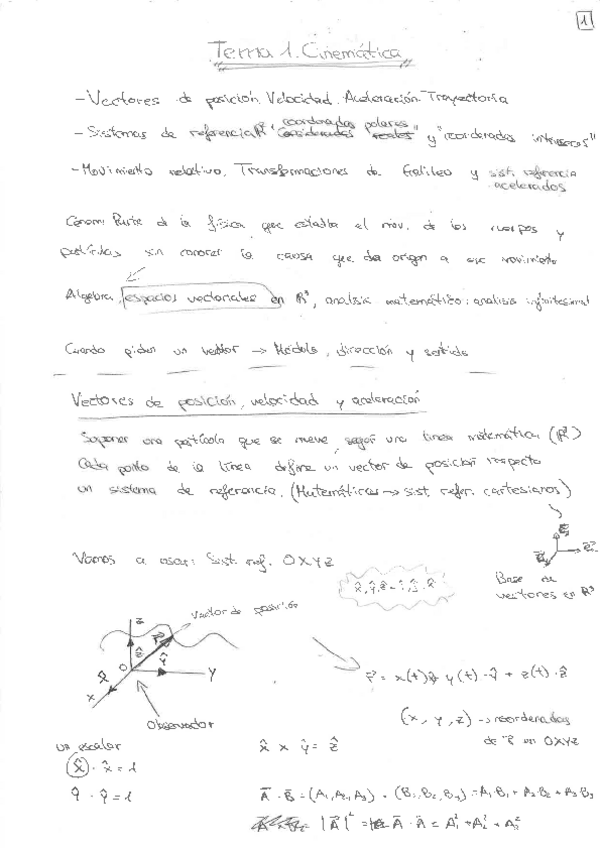 1
Tema 1. Cinemática
- Vectores de posición. Velocidad. Aceleración. Trayectoria
coordenadas polares
- Sistemas de referencia R² " " y "coordenadas intrínsecas"
- Movimiento relativo. Transformaciones de Galileo y sist. referencia
acelerados
Parte de la física que estudia el mov. de los cuerpos y
partículas sin conocer la causa que da origen a ese movimiento
Algebra, espacios vectoriales en R³, analisis matemático: analisis infinitesimal
Cuando piden un vector → Módulo, dirección y sentido
Vectores de posición, velocidad y aceleración
Suponer una partícula que se mueve según una linea matemática (R³)
Cada punto de la línea define un vector de posición respecto
un sistema de referencia. (Matemáticas → sist. refer. cartesianos)
Vamos a usar: Sist. ref. OXYZ
Base de
vectores en R³
vector de posición
z
r⃗
ẑ
O
ŷ
Y
x̂
x
Observador
r⃗ = x(t)x̂ y(t)·ŷ + z(t)·ẑ
(x, y, z) → coordenadas
de r⃗ en OXYZ
un escalar
x̂ · x̂ = 1
ŷ · ŷ = 1
x̂ x ŷ = ẑ
A̅ · B̅ = (A₁, A₂, A₃) · (B₁, B₂, B₃) = A₁B₁ + A₂B₂ + A₃B₃
|A̅|² = A̅ · A̅ = A₁² + A₂² + A₃²